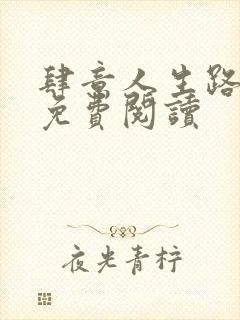 肆意人生路
免費閱讀
夜光青柠